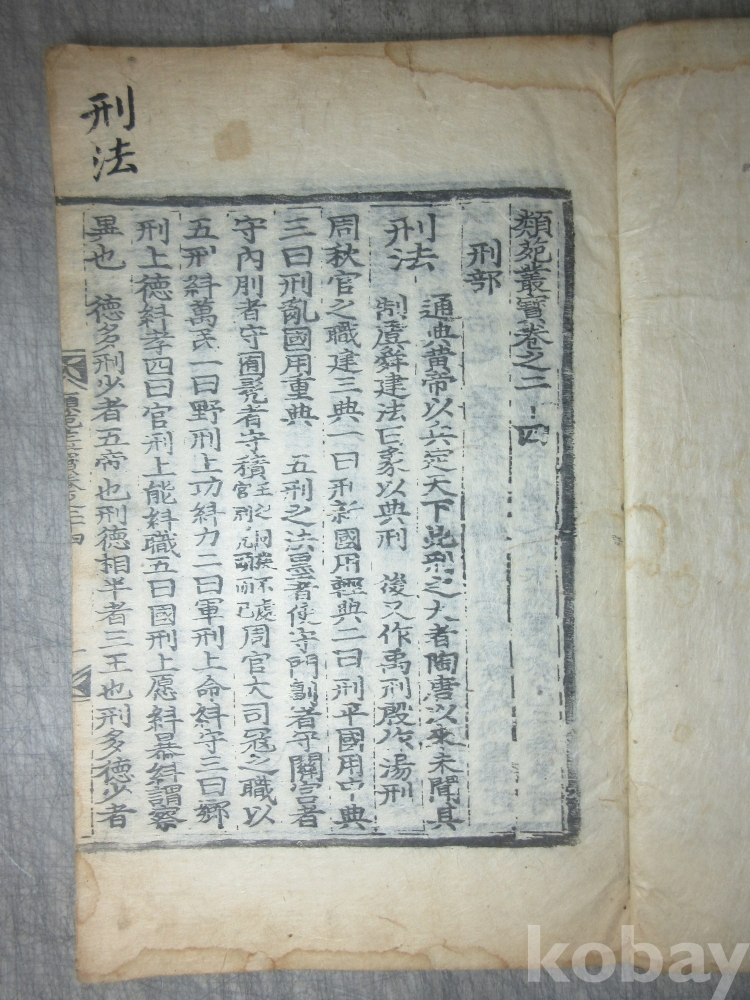 刑法
類苑叢寶卷之二十四
刑部
刑法 通典黃帝以兵定天下此刑之大者陶唐以來未聞其
制虞舜建法曰象以典刑 後又作禹刑殷作湯刑
周秋官之職建三典一曰刑新國用輕典二曰刑平國用中典
三曰刑亂國用重典 五刑之法墨者使守門劓者守關宮者
守內刖者守囿髡者守積 周官大司寇之職以
五刑糾萬民一曰野刑上功糾力二曰軍刑上命糾守三曰鄉
刑上德糾孝四曰官刑上能糾職五曰國刑上愿糾暴糾謂察
異也 德多刑少者五帝也刑德相半者三王也刑多德少者
kobay